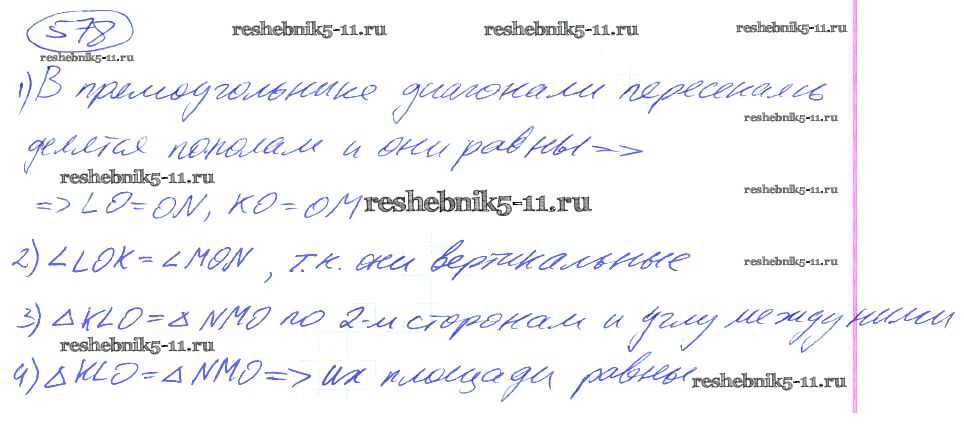 578
reshebnik5-11.ru reshebnik5-11.ru reshebnik5-11.ru
reshebnik5-11.ru
1) В прямоугольнике диагонали пересекаясь
reshebnik5-11.ru
делятся пополам и они равны =>
reshebnik5-11.ru
=> LO = ON, KO = OM reshebnik5-11.ru reshebnik5-11.ru
2) ∠LOK = ∠MON, т.к. они вертикальные reshebnik5-11.ru
3) △KLO = △NMO по 2-м сторонам и углу между ними
reshebnik5-11.ru
4) △KLO = △NMO => их площади равны reshebnik5-11.ru